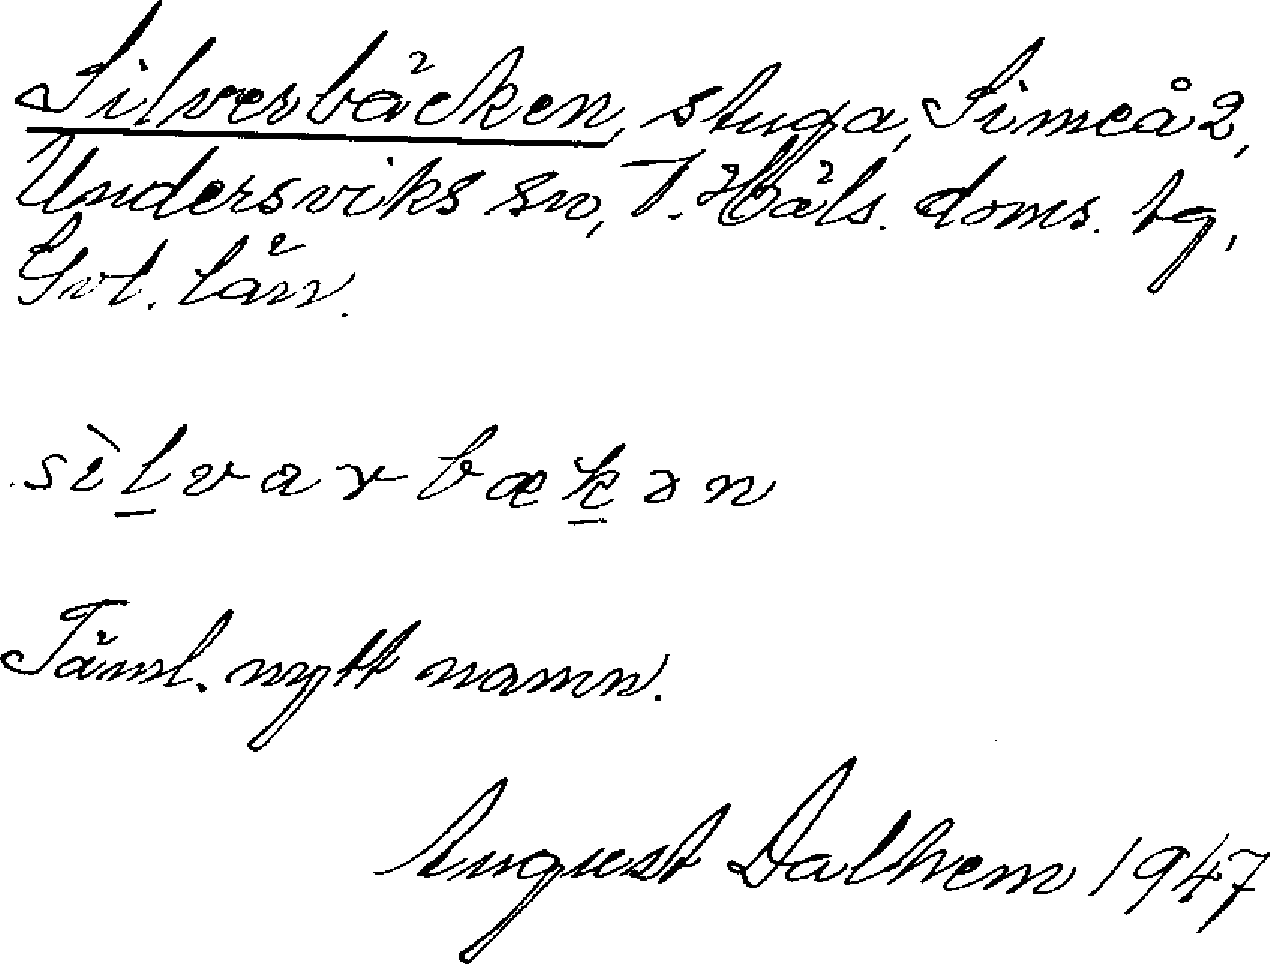 Silverbäcken, stuga, Simeå 2,
Undersviks sn, V. Häls. doms. tg,
Gvl. län.
sìlvarbækən
Täml. nytt namn.
August Dalhem 1947